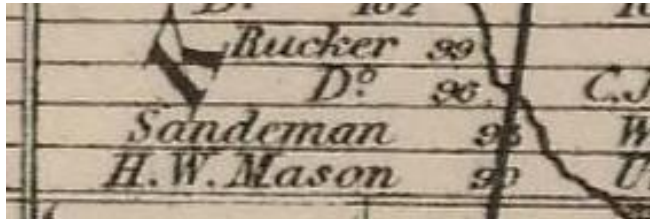 Dº 102
Rucker 99
Dº 96 C.J
Sandeman 93 W
H.W. Mason 90 U